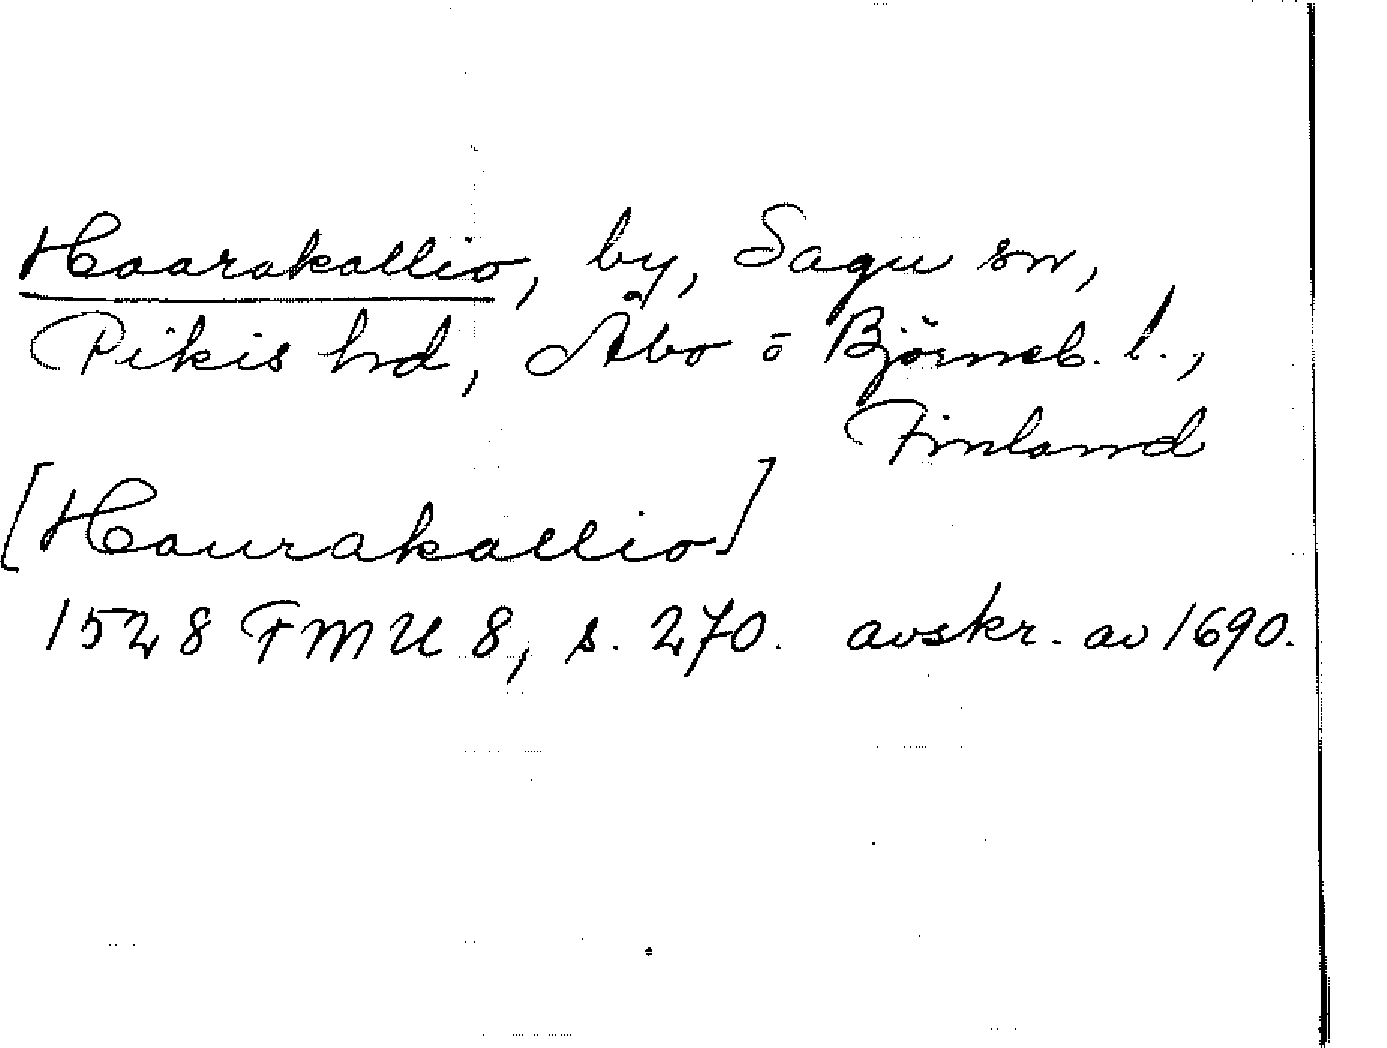 Haarakallio, by, Sagu sn,
Pikis hrd, Åbo o Björneb. l.,
Finland
[Haurakallio]
1528 FMU 8, s. 270. avskr. av 1690.